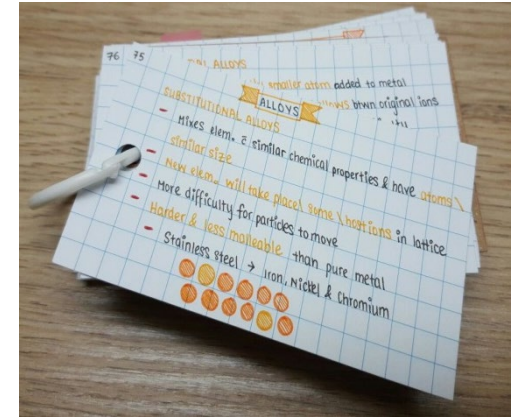 76 75
ALLOYS
smaller atom added to metal
btwn original ions
ALLOYS
SUBSTITUTIONAL ALLOYS
- Mixes elem. c̄ similar chemical properties & have atoms \
similar size
- New elem. will take place \ some \ locations in lattice
- More difficulty for particles to move
- Harder & less malleable than pure metal
- Stainless steel → Iron, Nickel & Chromium